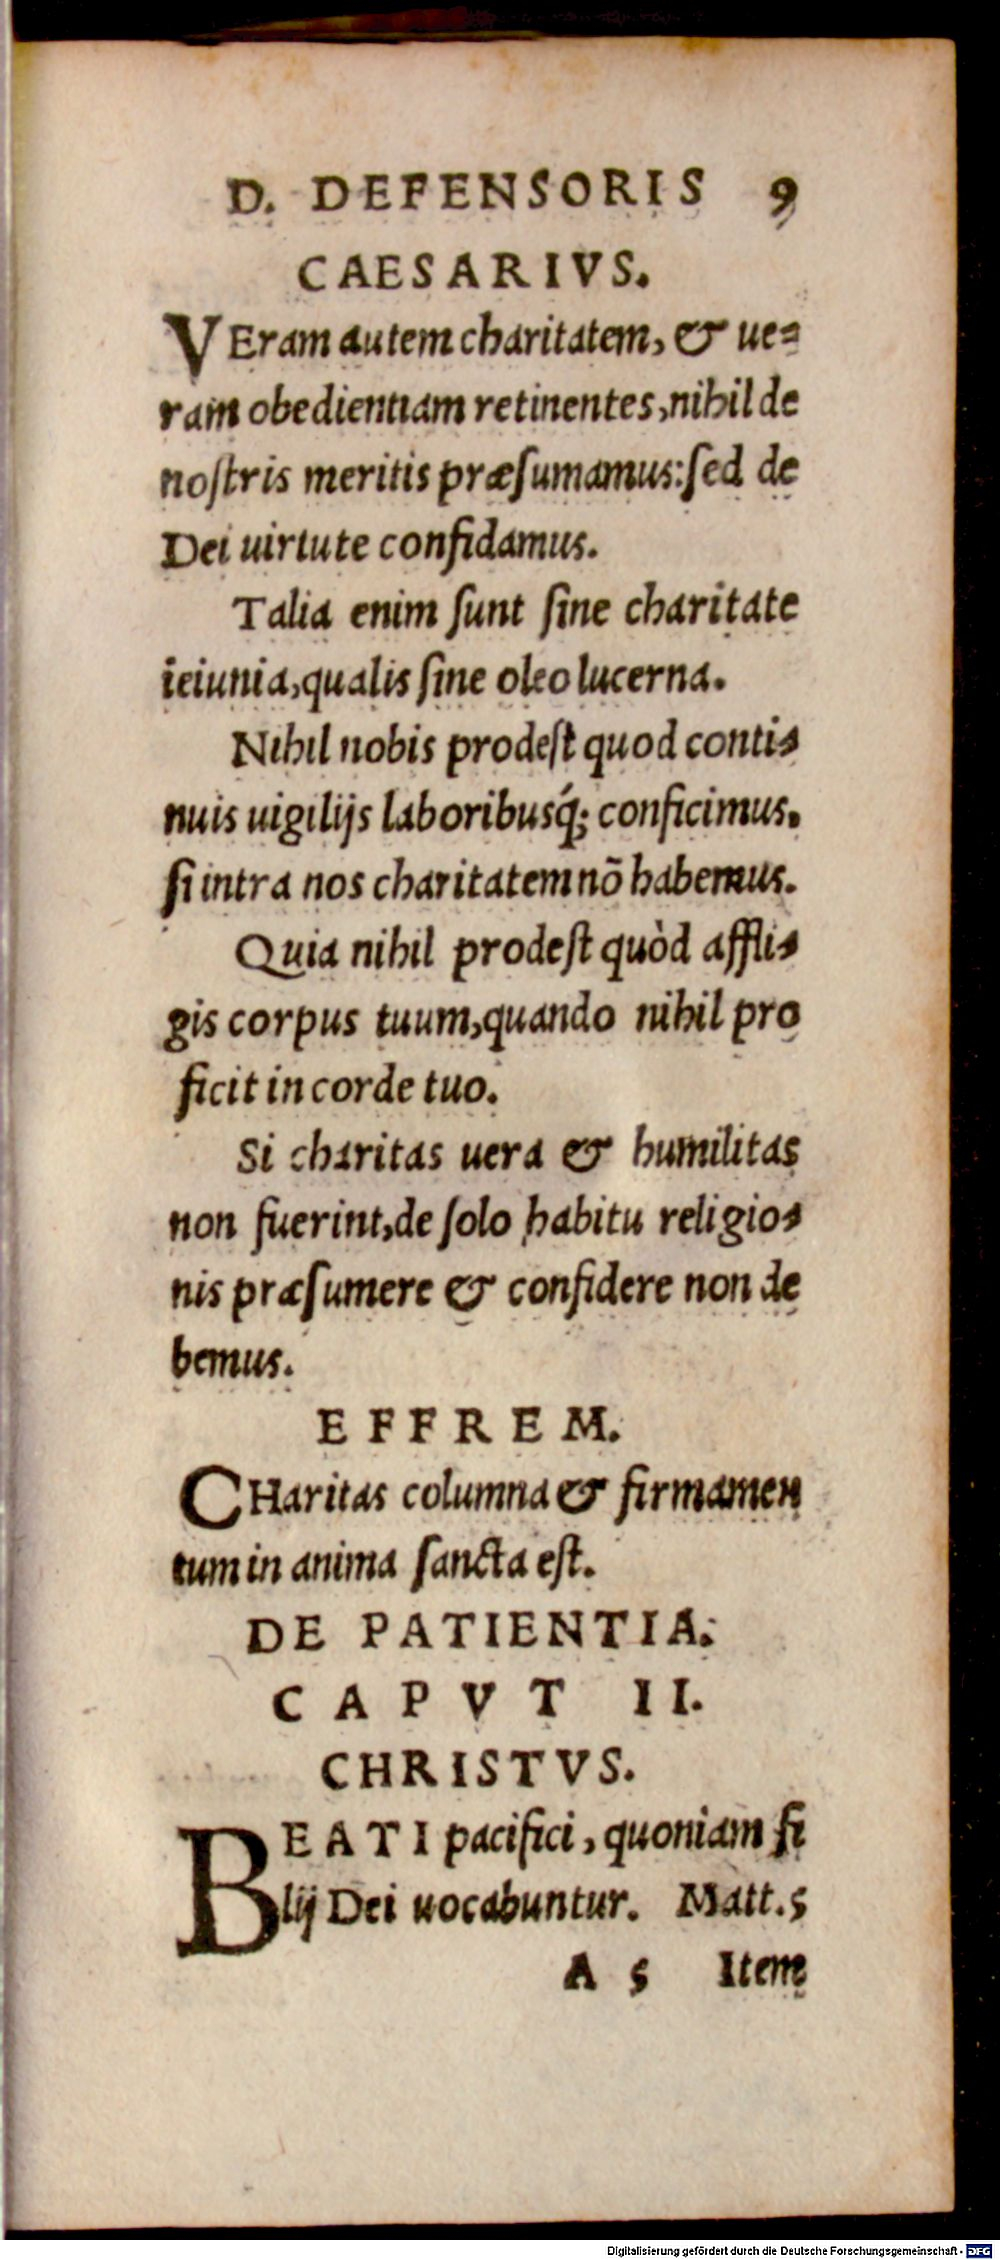 D. DEFENSORIS 9
CAESARIVS.
VEram autem charitatem, & ue=
ram obedientiam retinentes, nihil de
noſtris meritis præſumamus: ſed de
Dei uirtute confidamus.
Talia enim ſunt ſine charitate
ieiunia, qualis ſine oleo lucerna.
Nihil nobis prodeſt quod conti=
nuis uigilijs laboribusq́; conficimus.
ſi intra nos charitatem nõ habemus.
Quia nihil prodeſt quòd affli=
gis corpus tuum, quando nihil pro
ficit in corde tuo.
Si charitas uera & humilitas
non fuerint, de ſolo habitu religio=
nis præſumere & confidere non de
bemus.
EFFREM.
CHaritas columna & firmamen
tum in anima ſancta eſt.
DE PATIENTIA.
CAPVT II.
CHRISTVS.
BEATI pacifici, quoniam fi
lij Dei uocabuntur. Matt. 5
A 5 Item
Digitalisierung gefördert durch die Deutsche Forschungsgemeinschaft - DFG